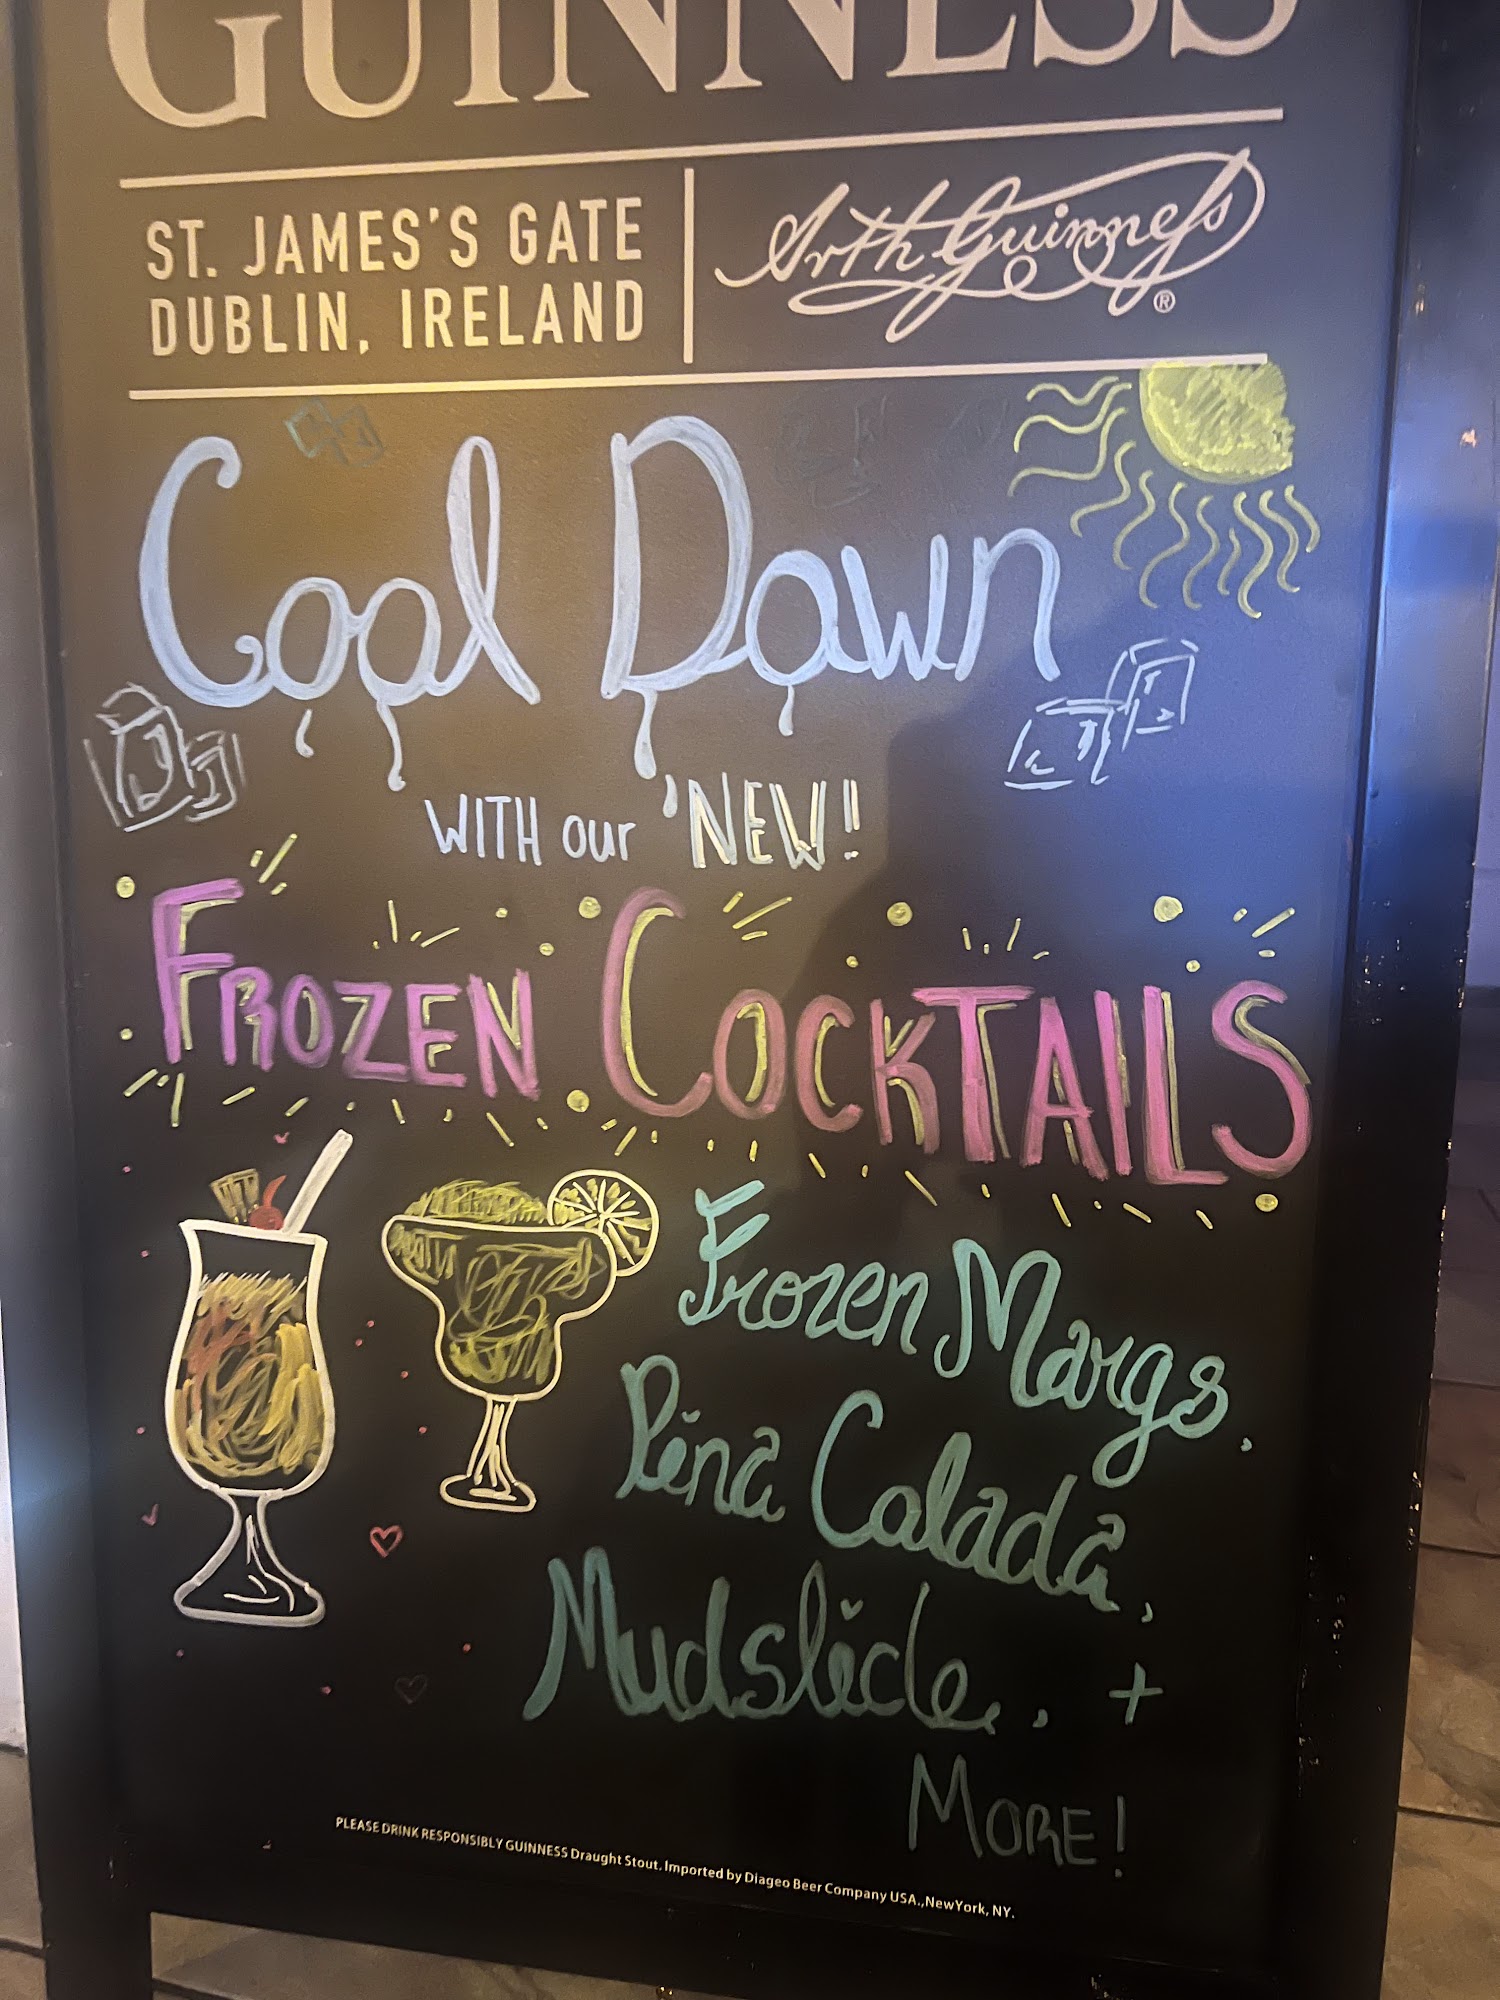 GUINNESS
ST. JAMES'S GATE
DUBLIN, IRELAND
Arth Guinness ®
Cool Down
WITH our 'NEW!!
FROZEN COCKTAILS
Frozen Margs,
Pina Calada,
Mudslide, +
MORE!
PLEASE DRINK RESPONSIBLY GUINNESS Draught Stout. Imported by Diageo Beer Company USA.,NewYork, NY.